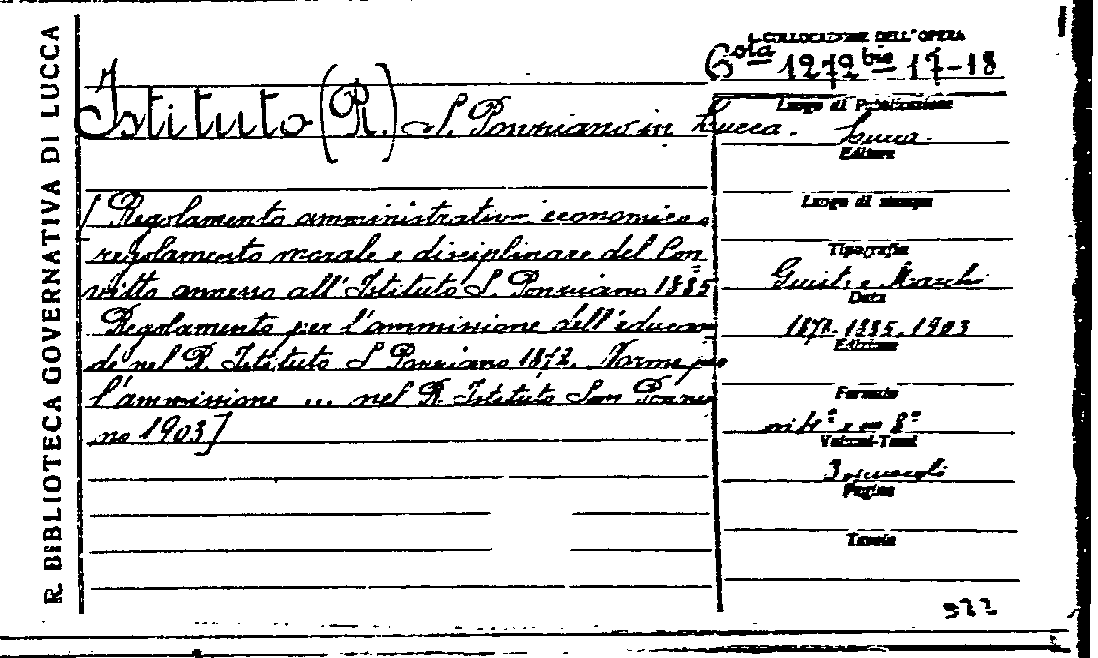 R. BIBLIOTECA GOVERNATIVA DI LUCCA
COLLOCAZIONE DELL'OPERA
1272 bis 17-18
Istituto (R.) S. Ponziano in Lucca.
[Regolamento amministrativo economico,
regolamento morale e disciplinare del Con
vitto annesso all'Istituto S. Ponziano 1885
Regolamento per l'ammissione dell'educan
de nel R. Istituto S Ponziano 1872. Norme per
l'ammissione ... nel R. Istituto San Ponzia
no 1903]
Luogo di Pubblicazione
Lucca.
Editore
Luogo di stampa
Tipografia
Giusti e Marchi
Data
1872-1885, 1903
Edizione
Formato
in 4° e in 8°
Volumi-Tomi
3 opuscoli
Pagine
Tavole
922